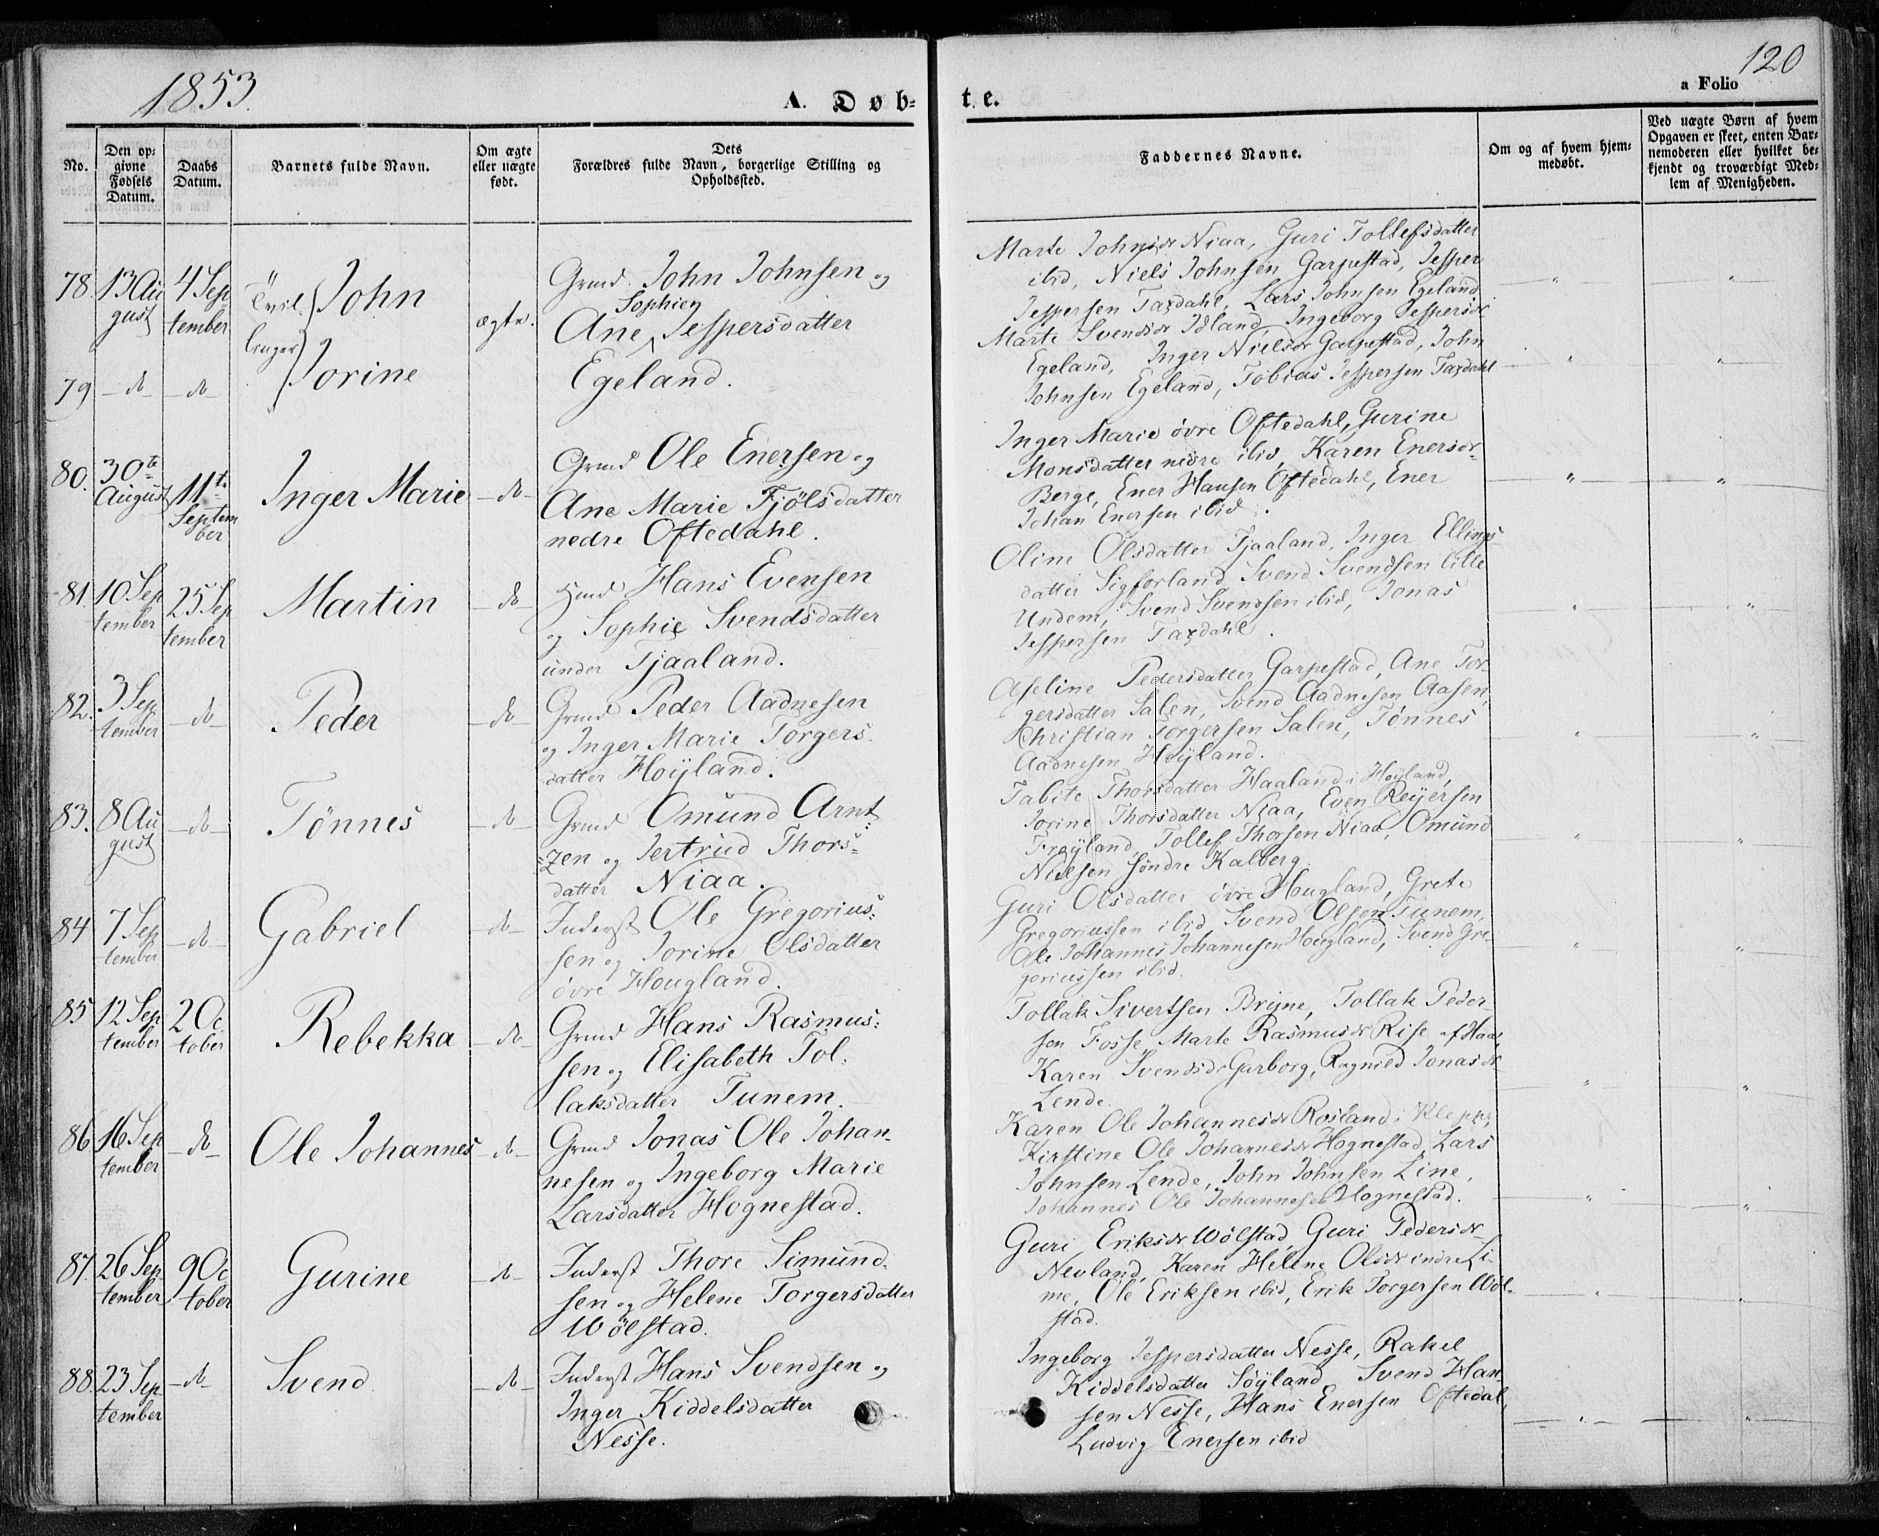 1853. A. Døb-
te. a Folio 120
No. Den opgivne Fødsels Datum. Daabs Datum. Barnets fulde Navn. Om ægte eller uægte født. Dets Forældres fulde Navn, borgerlige Stilling og Opholdssted. Faddernes Navne. Om og af hvem hjemmedøbt. Ved uægte Børn af hvem Opgaven er skeet, enten Barnemoderen eller hvilket bekjendt og troværdigt Medlem af Menigheden.
78. 13 Au
gust
4 Sep
tember
Tvil
linger
John
ægte.
Grmd. John Johnsen og
Sophie
Ane Jespersdatter
Egeland.
Marte Johnsdr Niaa, Guri Tollefsdatter
ibid, Niels Johnsen Garpestad, Jesper
Jespersen Taxdahl, Lars Johnsen Egeland
79 do do
Jorine
Marte Svendsdr Idland, Ingeborg Jespersdr
Egeland, Inger Nielsdr Garpestad, John
Johnsen Egeland, Tobias Jespersen Taxdahl
80. 30te
August
11te
Septem
ber
Inger Marie
do
Grmd Ole Enersen og
Ane Marie Fjølsdatter
nedre Oftedahl.
Inger Marie øvre Oftedahl, Gurine
Monsdatter nedre ibid, Karen Enersdr
Berge, Ener Hansen Oftedahl, Ener
Johan Enersen ibid.
81. 10 Sep
tember
25 Sep
tember
Martin
do
Hmd Hans Evensen
og Sophie Svendsdatter
under Tjaaland.
Oline Olsdatter Tjaaland, Inger Ellings
datter Sigforland, Svend Svendsen lille
Undem, Svend Svendsen ibid, Jonas
Jespersen Taxdahl.
82. 3 Sep
tember
do
Peder
do
Grmd Peder Aadnesen
og Inger Marie Torgers
datter Høyland.
Aseline Pedersdatter Garpestad, Ane Tor
gersdatter Salen, Svend Aadnesen Aasen,
Christian Torgersen Salen, Tønnes
Aadnesen Høyland.
83. 8 Au
gust
do
Tønnes
do
Grmd Omund Arnt
zen og Jertrud Thors
datter Niaa.
Tabite Thorsdatter Haaland i Høyland,
Jorine Thorsdatter Niaa, Even Reyersen
Frøyland, Tollef Thorsen Niaa, Omund
Nielsen søndre Kalberg.
84 7 Sep
tember
do
Gabriel
do
Inderst Ole Gregorius
sen og Jorine Olsdatter
øvre Hougland.
Guri Olsdatter øvre Hougland, Grete
Gregoriussen ibid, Svend Olsen Tunem,
Ole Johannes Johannesen Hougland, Svend Gre
goriussen ibid.
85 12 Sep
tember
2 Oc
tober
Rebekka
do
Grmd Hans Rasmus
sen og Elisabeth Tol
laksdatter Tunem.
Tollak Sivertsen Bryne, Tollak Peder
sen Fosse, Marte Rasmusdr Rise af Haa,
Karen Svendsdr Garborg, Ragnild Jonasdr
Lende.
86 16 Sep
tember
do
Ole Johannes
do
Grmd Jonas Ole Johan
nesen og Ingeborg Marie
Larsdatter Hognestad.
Karen Ole Johannesdr Rosland i Klepp,
Kirstine Ole Johannesdr Hognestad, Lars
Johnsen Lende, John Johnsen Line,
Johannes Ole Johannesen Hognestad.
87. 26 Sep
tember
9 Oc
tober
Gurine
do
Inderst Thore Simund
sen og Helene Torgersdatter
Wølstad.
Guri Eriksdr Wølstad, Guri Pedersdr
Nevland, Karen Helene Olsdr indre Li
me, Ole Eriksen ibid, Erik Torgersen Wøl
stad.
88 23 Sep
tember
do
Svend
do
Inderst Hans Svendsen og
Inger Kiddelsdatter
Nesse.
Ingeborg Jespersdatter Nesse, Rakel
Kiddelsdatter Søyland, Svend Han
sen Nesse, Hans Enersen Oftedal,
Ludvig Enersen ibid